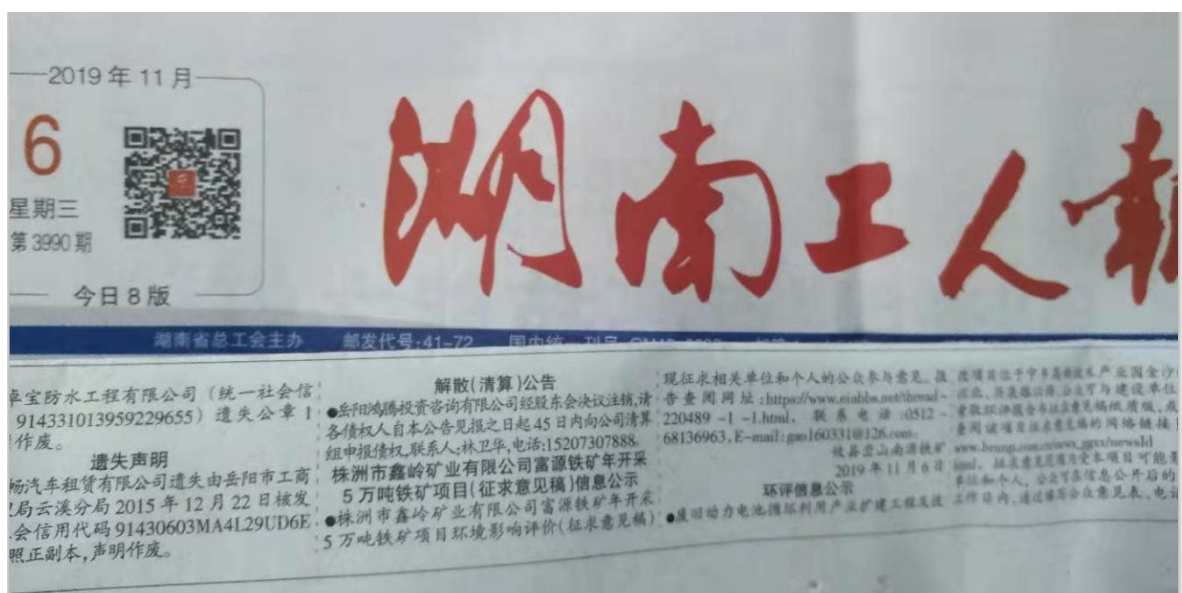 2019年11月
6
星期三
第3990期
今日8版
湖南工人报
湖南省总工会主办 邮发代号:41-72 国内统一刊号
卓宝防水工程有限公司（统一社会信
914331013959229655）遗失公章1
作废。
遗失声明
畅汽车租赁有限公司遗失由岳阳市工商
局云溪分局2015年12月22日核发
会信用代码91430603MA4L29UD6E
照正副本,声明作废。
解散(清算)公告
●岳阳鸿腾投资咨询有限公司经股东会决议注销,请
各债权人自本公告见报之日起45日内向公司清算
组申报债权,联系人:林卫华,电话:15207307888。
株洲市鑫岭矿业有限公司富源铁矿年开采
5万吨铁矿项目(征求意见稿)信息公示
●株洲市鑫岭矿业有限公司富源铁矿年开采
5万吨铁矿项目环境影响评价(征求意见稿)
现征求相关单位和个人的公众参与意见。报
告查阅网址:https://www.eiabbs.net/thread-
220489-1-1.html。联系电话:0512-
68136963。E-mail:gao160331@126.com。
攸县峦山南源铁矿
2019年11月6日
环评信息公示
●废旧动力电池循环利用产业扩建工程及技
改项目位于宁乡高新技术产业园金沙
公众可与建设单位
索取环评报告书征求意见稿纸质版,或
查阅该项目征求意见稿的网络链接
html。征求意见范围为受本项目可能影
单位和个人。公众可在信息公开后的
工作日内,通过填写公众意见表、电话